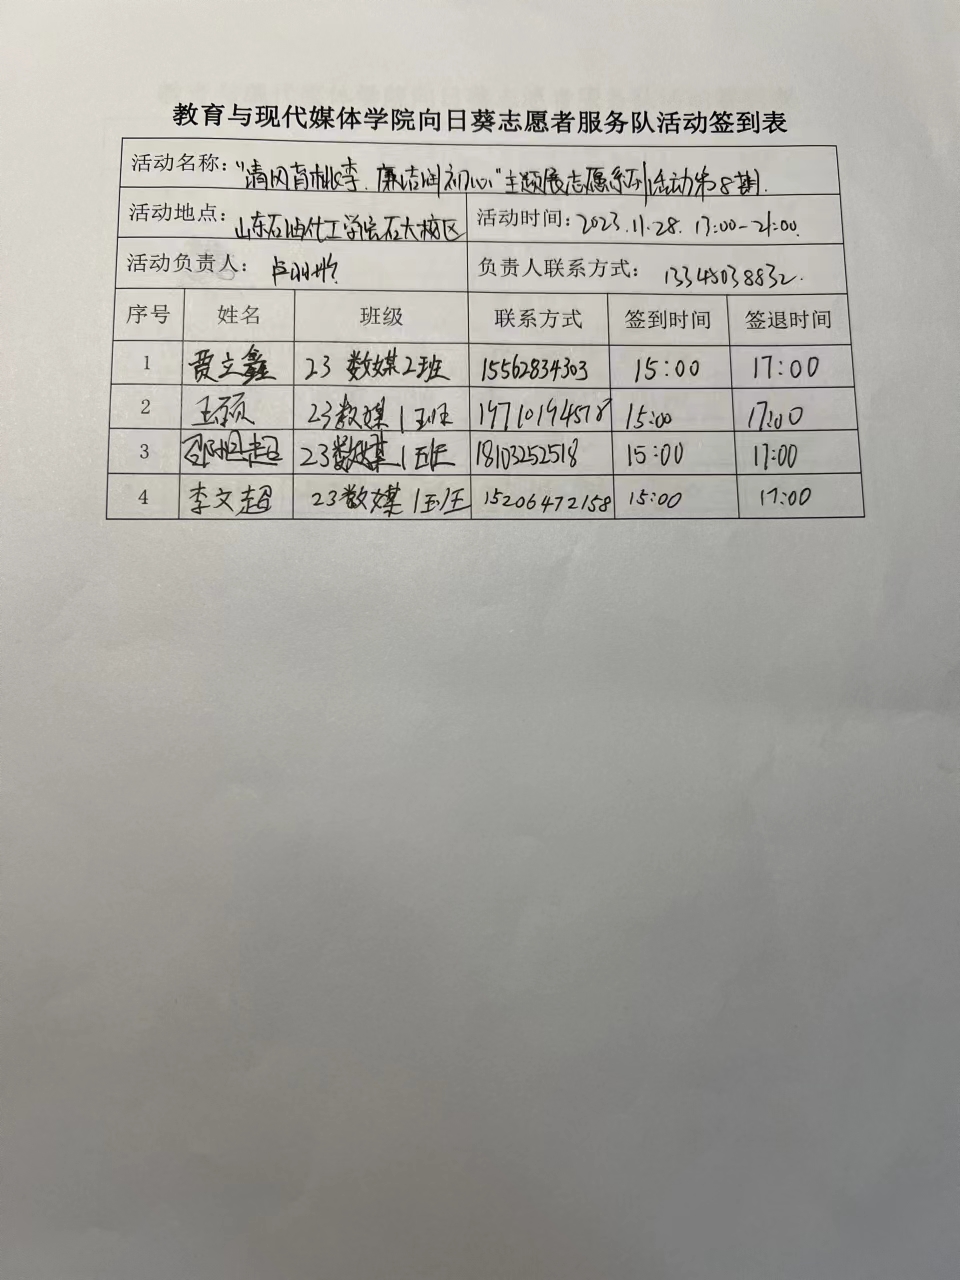 教育与现代媒体学院向日葵志愿者服务队活动签到表
活动名称：“清风育桃李.廉洁润初心”主题展志愿系列活动第8期.
活动地点： 山东石油化工学院石大校区 活动时间：2023.11.28. 13:00-21:00.
活动负责人： 卢 负责人联系方式： 13345038832.
序号 姓名 班级 联系方式 签到时间 签退时间
1 贾立鑫 23 数媒2班 15562834303 15:00 17:00
2 王硕 23数媒1班 15:00 17:00
3 邵阳超 23数媒1班 18103252518 15:00 17:00
4 李文超 23数媒1班 15206472158 15:00 17:00